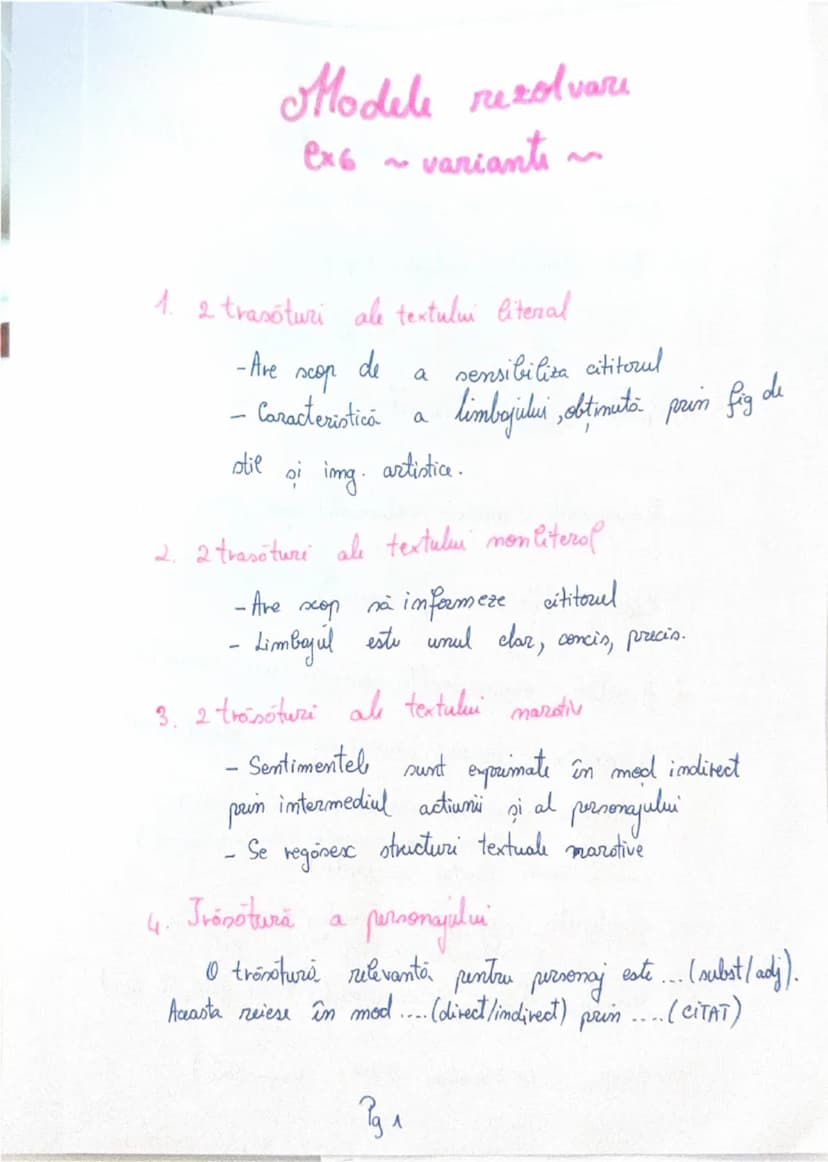 Modele rezolvare
ex6 ~ variante ~
1. 2 trasături ale textului literal
-Are scop de a sensibiliza cititorul
- Caracteristică a limbajului, obținută prin fig de
stil și img. artistice.
2. 2 trasături ale textului nonliteral
- Are scop să informeze cititorul
- Limbajul este unul clar, concis, precis.
3. 2 trăsături ale textului narativ
- Sentimentele sunt exprimate în mod indirect
prin intermediul actiunii și al personajului
- Se regăsesc structuri textuale narative
4. Trăsătură a personajului
O trăsătură relevantă pentru personaj este ... (subst/adj).
Aceasta reiese în mod .... (direct/indirect) prin .... (CITAT)
Pg 1